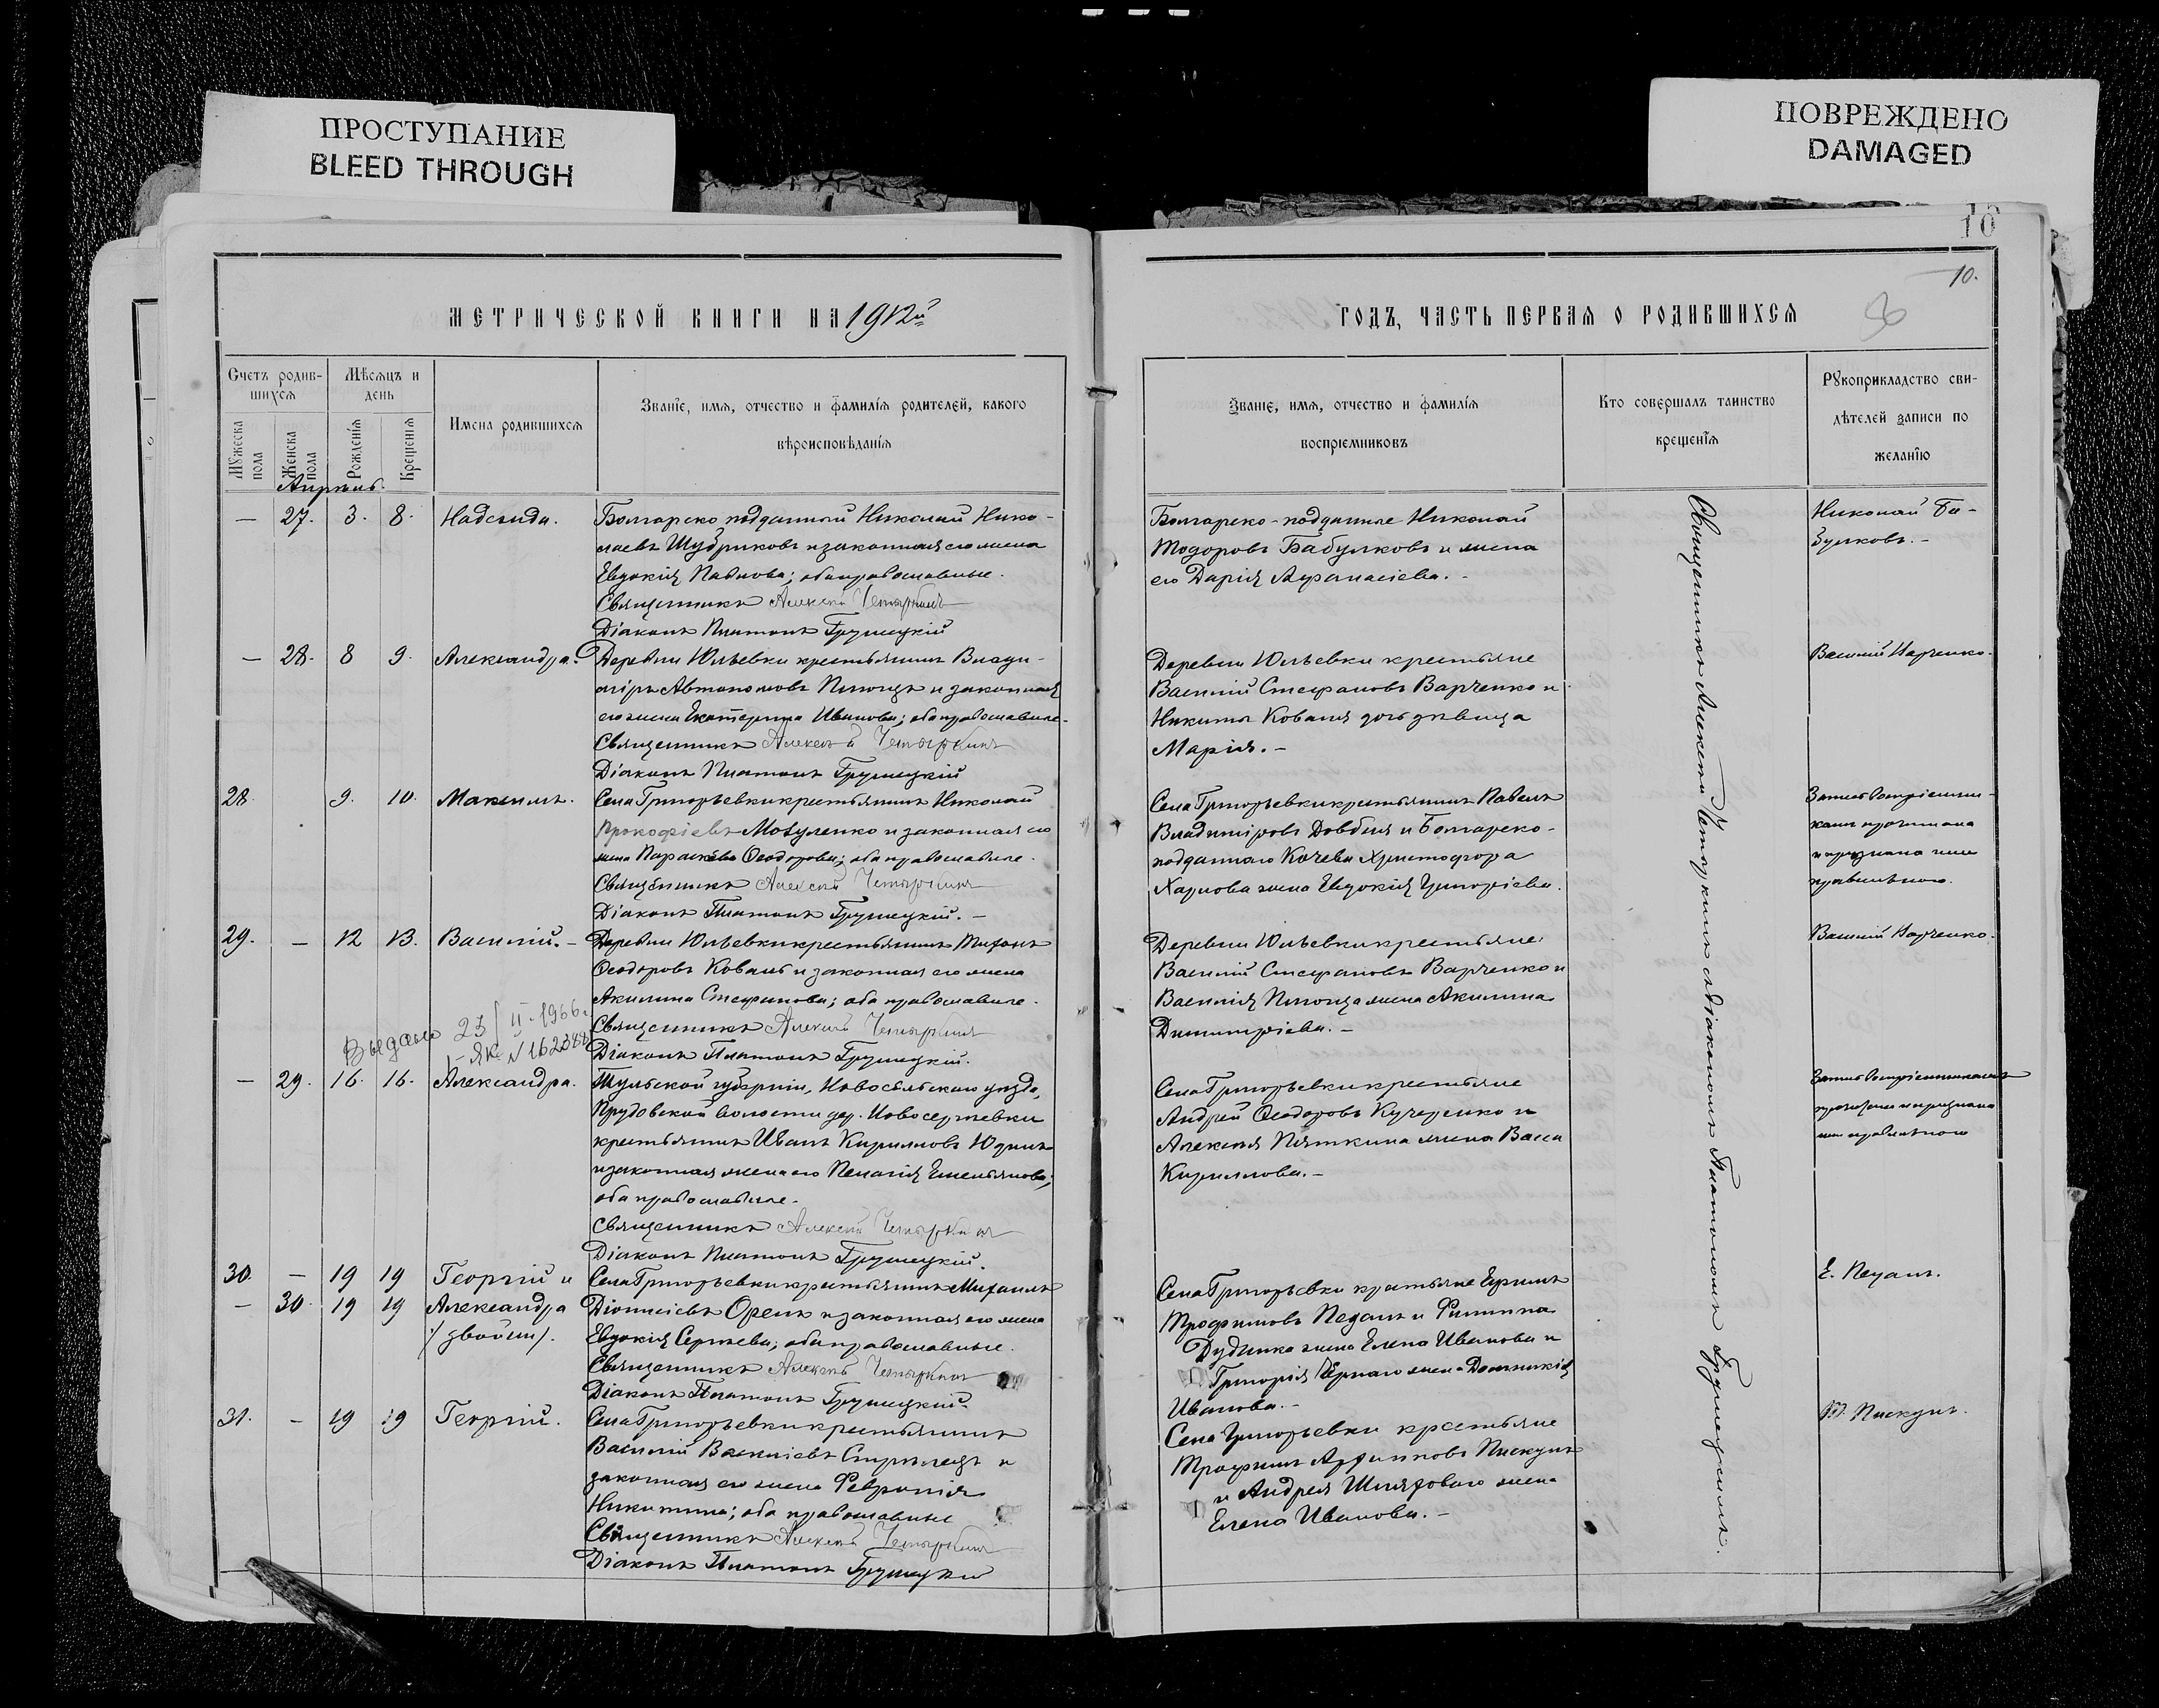 ПРОСТУПАНИЕ
BLEED THROUGH
ПОВРЕЖДЕНО
DAMAGED
16
10.
МЕТРИЧЕСКОЙ КНИГИ НА 1912й
Счетъ родив-
шихся
Мѣсяцъ и
день
Мужеска
пола
Женска
пола
Рожденія
Крещенія
Имена родившихся
Званіе, имя, отчество и фамилія родителей, какого
вѣроисповѣданія
Апрѣль.
— 27. 3. 8. Надежда. Болгарско подданный Николай Нико-
лаевъ Шубриковъ и законная его жена
Евдокія Павлова; оба православные.
Священникъ Алексѣй Четыркинъ
Діаконъ Платонъ Грушецкій
— 28. 8 9. Александра. Деревни Юльевки крестьянинъ Влади-
міръ Автономовъ и законная
его жена Екатерина Иванова; оба православные.
Священникъ Алексѣй Четыркинъ
Діаконъ Платонъ Грушецкій
28. 9. 10. Максимъ. Села Григорьевки крестьянинъ Николай
Прокофіевъ Мозуленко и законная его
жена Параскева Ѳеодорова; оба православные.
Священникъ Алексѣй Четыркинъ
Діаконъ Платонъ Грушецкій. —
29. — 12 13. Василій. — Деревни Юльевки крестьянинъ Тихонъ
Ѳеодоровъ Коваль и законная его жена
Акилина Стефанова; оба православные.
Священникъ Алексѣй Четыркинъ
Діаконъ Платонъ Грушецкій.
Выдано 23/II-1966г.
I-ЯК N 162388
— 29. 16. 16. Александра. Тульской губерніи, Новосильскаго уѣзда,
Прудовской волости дер. Новосергѣевки
крестьянинъ Иванъ Кирилловъ Юдинъ
и законная жена его Пелагія Емельянова;
оба православные.
Священникъ Алексѣй Четыркинъ
Діаконъ Платонъ Грушецкій.
30. — 19 19 Георгій и Села Григорьевки крестьянинъ Михаилъ
— 30. 19 19 Александра Діонисіевъ Орелъ и законная его жена
/двойни/. Евдокія Сергѣева; оба православные.
Священникъ Алексѣй Четыркинъ
Діаконъ Платонъ Грушецкій.
31. — 19 19 Георгій. Села Григорьевки крестьянинъ
Василій Васильевъ Стрѣлецъ и
законная его жена Февронія
Никитина; оба православные
Священникъ Алексѣй Четыркинъ
Діаконъ Платонъ Грушецкій
ГОДЪ, ЧАСТЬ ПЕРВАЯ О РОДИВШИХСЯ
Званіе, имя, отчество и фамилія
воспріемниковъ
Кто совершалъ таинство
крещенія
Рукоприкладство сви-
дѣтелей записи по
желанію
Болгарско-подданные Николай
Тодоровъ Бабулковъ и жена
его Дарія Аѳанасіева. -
Николай Ба-
булковъ. -
Деревни Юльевки крестьяне
Василій Стефановъ Варченко и
Никиты Коваля дочь дѣвица
Марія. —
Василій Варченко.
Села Григорьевки крестьянинъ Павелъ
Владиміровъ Довбня и Болгарско-
подданнаго Кочева Христофора
Харлова жена Евдокія Григоріева.
Запись воспріемни-
камъ прочитана
и признана ими
правильною.
Деревни Юльевки крестьяне
Василій Стефановъ Варченко и
Василія жена Акилина
Димитріева. —
Василій Варченко.
Села Григорьевки крестьяне
Андрей Ѳеодоровъ Кучеренко и
Алексѣя Пяткина жена Васса
Кириллова. —
Запись воспріемникамъ
прочитана и признана
ими правильною
Села Григорьевки крестьяне Ефимъ
Трофимовъ Педанъ и Филиппа
Дудника жена Елена Иванова и
Григорія Чернаго жена Домникія
Иванова. —
Е. Педанъ.
Села Григорьевки крестьяне
Трофимъ Пискунъ
и Андрея Шляховаго жена
Елена Иванова. —
Т. Пискунъ.
Священникъ Алексѣй Четыркинъ съ діакономъ Платономъ Грушецкимъ.